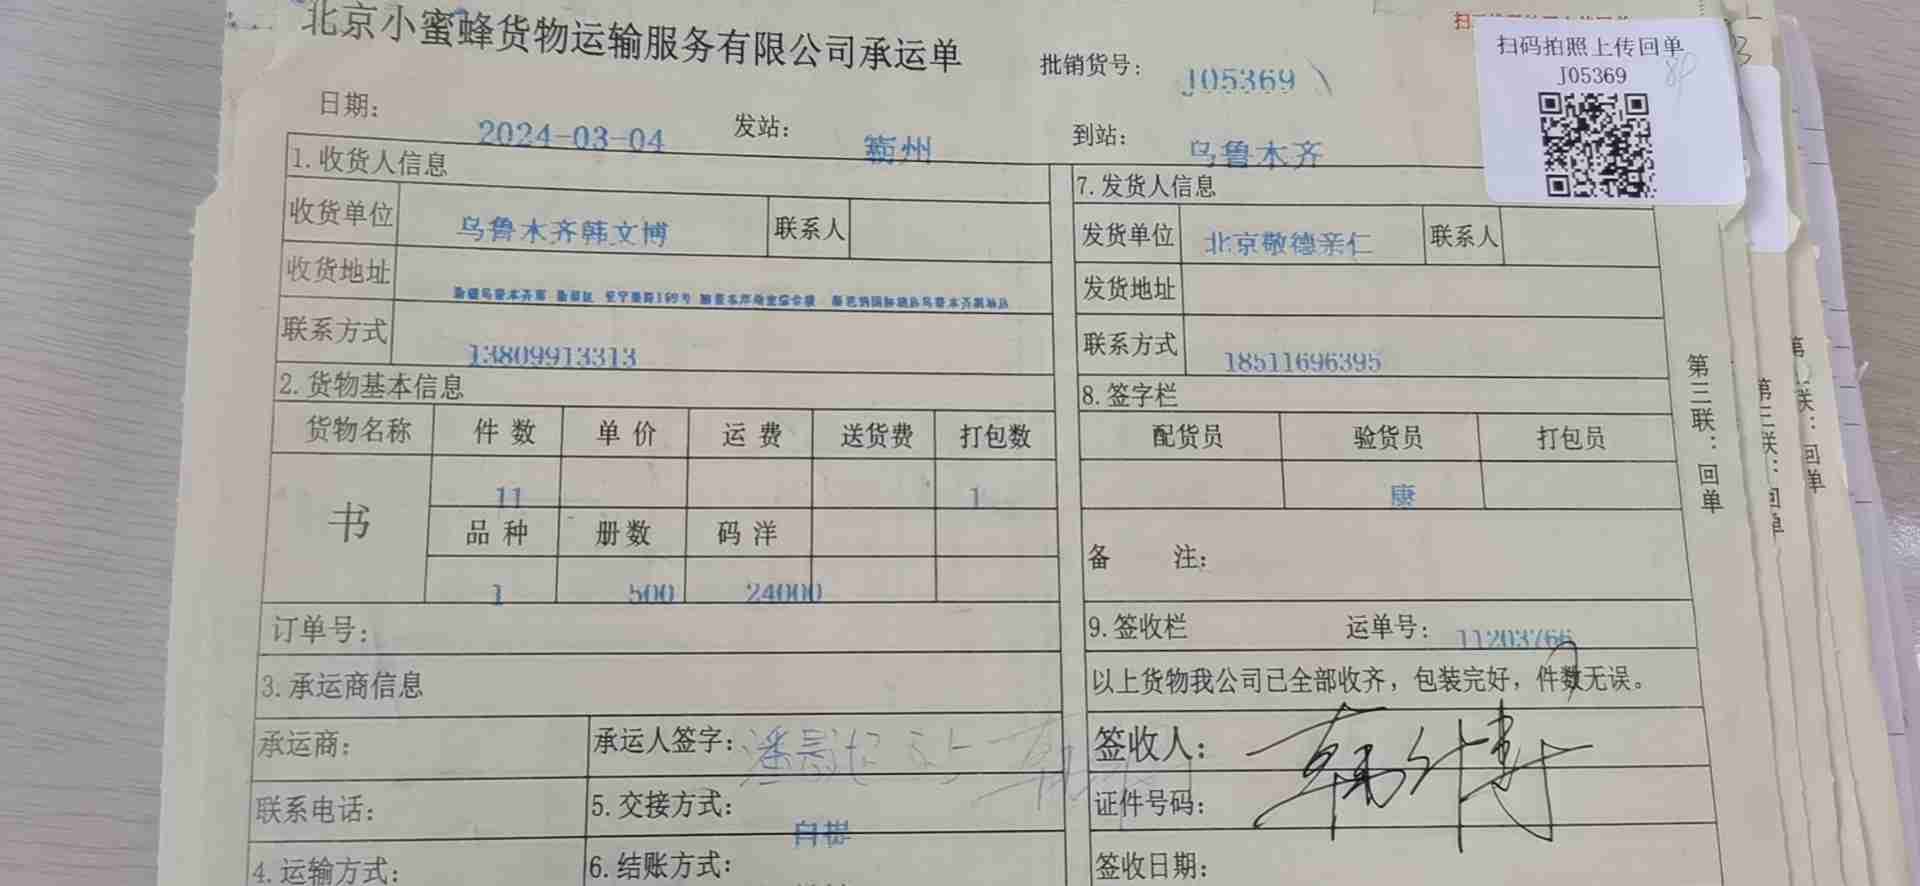 北京小蜜蜂货物运输服务有限公司承运单
批销货号: J05369
扫码拍照上传回单
J05369
日期: 2024-03-04 发站: 州 到站: 乌鲁木齐
1.收货人信息
收货单位 乌鲁木齐韩文博 联系人
收货地址
联系方式 13809913313
2.货物基本信息
货物名称 件数 单价 运费 送货费 打包数
书 11 1
品种 册数 码洋
1 500 24000
订单号:
3.承运商信息
承运商: 承运人签字:
联系电话: 5.交接方式:
4.运输方式: 6.结账方式:
7.发货人信息
发货单位 北京敬德亲仁 联系人
发货地址
联系方式 18511696395
8.签字栏
配货员 验货员 打包员
康
备注:
9.签收栏 运单号: 11203766
以上货物我公司已全部收齐，包装完好，件数无误。
签收人: 韩文博
证件号码:
签收日期:
第三联：回单
第三联：回单